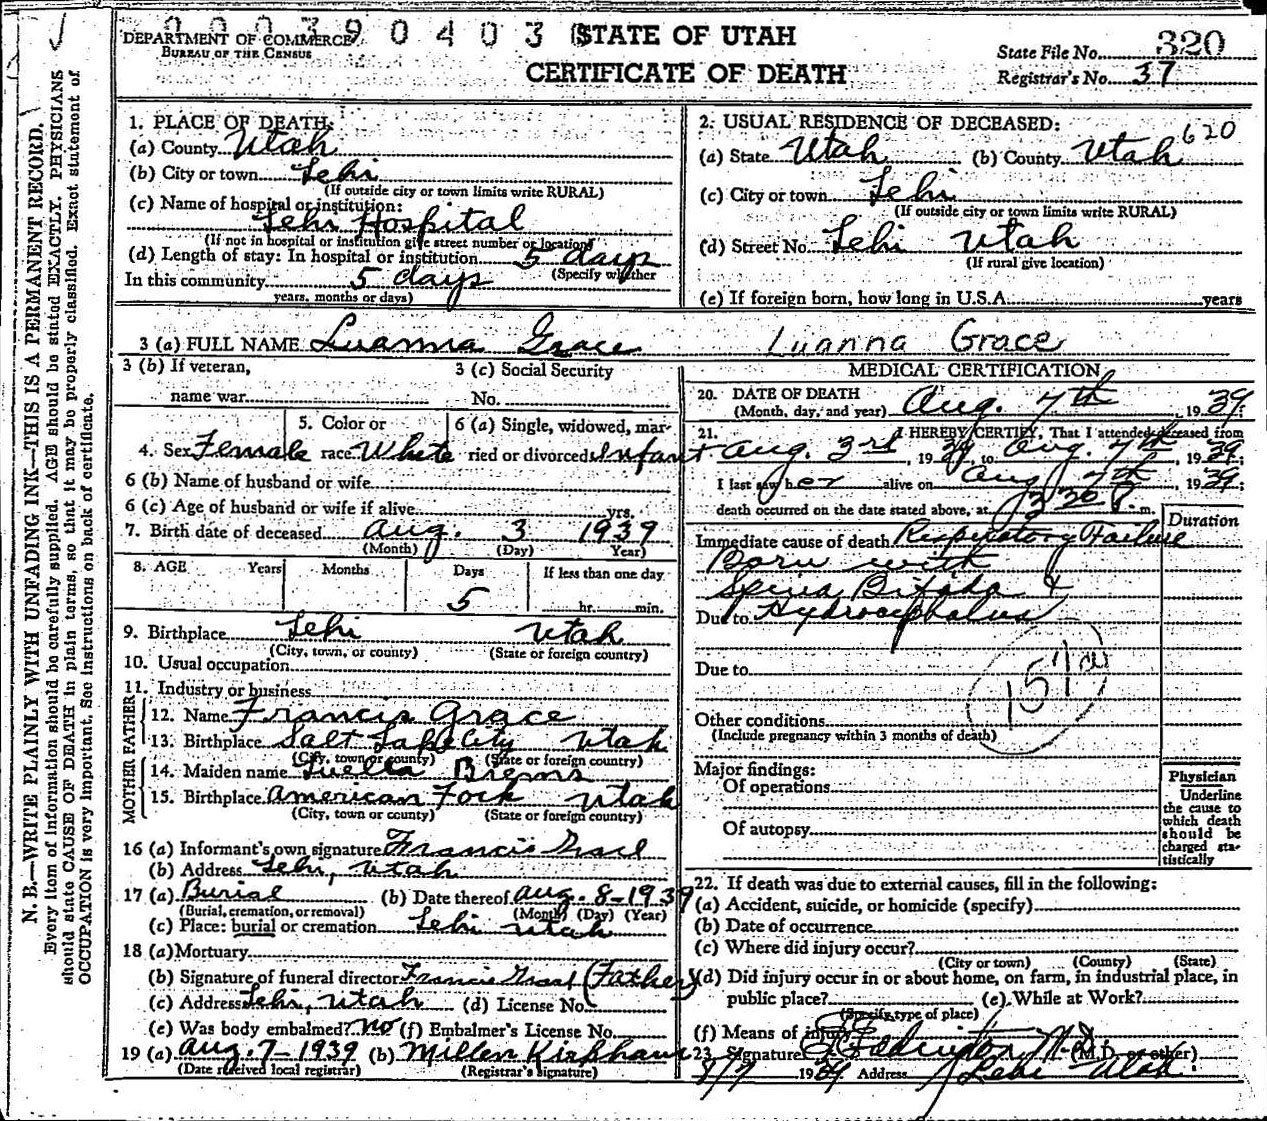 000390403
DEPARTMENT OF COMMERCE
BUREAU OF THE CENSUS
STATE OF UTAH
CERTIFICATE OF DEATH
State File No. 320
Registrar's No. 37
N. B.—WRITE PLAINLY WITH UNFADING INK—THIS IS A PERMANENT RECORD.
Every item of information should be carefully supplied. AGE should be stated EXACTLY. PHYSICIANS
should state CAUSE OF DEATH in plain terms, so that it may be properly classified. Exact statement of
OCCUPATION is very important. See instructions on back of certificate.
1. PLACE OF DEATH:
(a) County Utah
(b) City or town Lehi
(If outside city or town limits write RURAL)
(c) Name of hospital or institution:
Lehi Hospital
(If not in hospital or institution give street number or location)
(d) Length of stay: In hospital or institution 5 days
(Specify whether
In this community 5 days
years, months or days)
2. USUAL RESIDENCE OF DECEASED:
620
(a) State Utah (b) County Utah
(c) City or town Lehi
(If outside city or town limits write RURAL)
(d) Street No. Lehi Utah
(If rural give location)
(e) If foreign born, how long in U.S.A. years
3 (a) FULL NAME Luanna Grace Luanna Grace
3 (b) If veteran,
name war
3 (c) Social Security
No.
4. Sex Female
5. Color or
race White
6 (a) Single, widowed, mar-
ried or divorced Infant
6 (b) Name of husband or wife
6 (c) Age of husband or wife if alive yrs.
7. Birth date of deceased Aug. 3 1939
(Month) (Day) Year)
8. AGE Years Months Days If less than one day
5 hr. min.
9. Birthplace Lehi Utah
(City, town, or county) (State or foreign country)
10. Usual occupation
11. Industry or business
FATHER
12. Name Francis Grace
13. Birthplace Salt Lake City Utah
(City, town or county) (State or foreign country)
MOTHER
14. Maiden name Luella Brems
15. Birthplace American Fork Utah
(City, town or county) (State or foreign country)
16 (a) Informant's own signature Francis Grace
(b) Address Lehi, Utah
17 (a) Burial (b) Date thereof Aug. 8-1939
(Burial, cremation, or removal) (Month) (Day) (Year)
(c) Place: burial or cremation Lehi Utah
18 (a) Mortuary
(b) Signature of funeral director Francis Grace (Father)
(c) Address Lehi, Utah (d) License No.
(e) Was body embalmed? no (f) Embalmer's License No.
19 (a) Aug. 7-1939 (b) Millen
(Date received local registrar) (Registrar's signature)
MEDICAL CERTIFICATION
20. DATE OF DEATH
(Month, day, and year) Aug. 7th, 1939.
21. I HEREBY CERTIFY, That I attended deceased from
Aug. 3rd, 1939, to Aug. 7th, 1939.
I last saw her alive on Aug 7th, 1939;
death occurred on the date stated above, at 3:30 P. m.
Duration
Immediate cause of death Respiratory Failure
Born with
Spina Bifida &
Due to Hydrocephalus
157a
Due to
Other conditions
(Include pregnancy within 3 months of death)
Major findings:
Of operations
Of autopsy
Physician
Underline
the cause to
which death
should be
charged sta-
tistically
22. If death was due to external causes, fill in the following:
(a) Accident, suicide, or homicide (specify)
(b) Date of occurrence
(c) Where did injury occur?
(City or town) (County) (State)
(d) Did injury occur in or about home, on farm, in industrial place, in
public place? (e) While at Work?
(Specify type of place)
(f) Means of injury
23. Signature Eddington M.D. (M.D. or other)
8/7 1939 Address Lehi Utah.